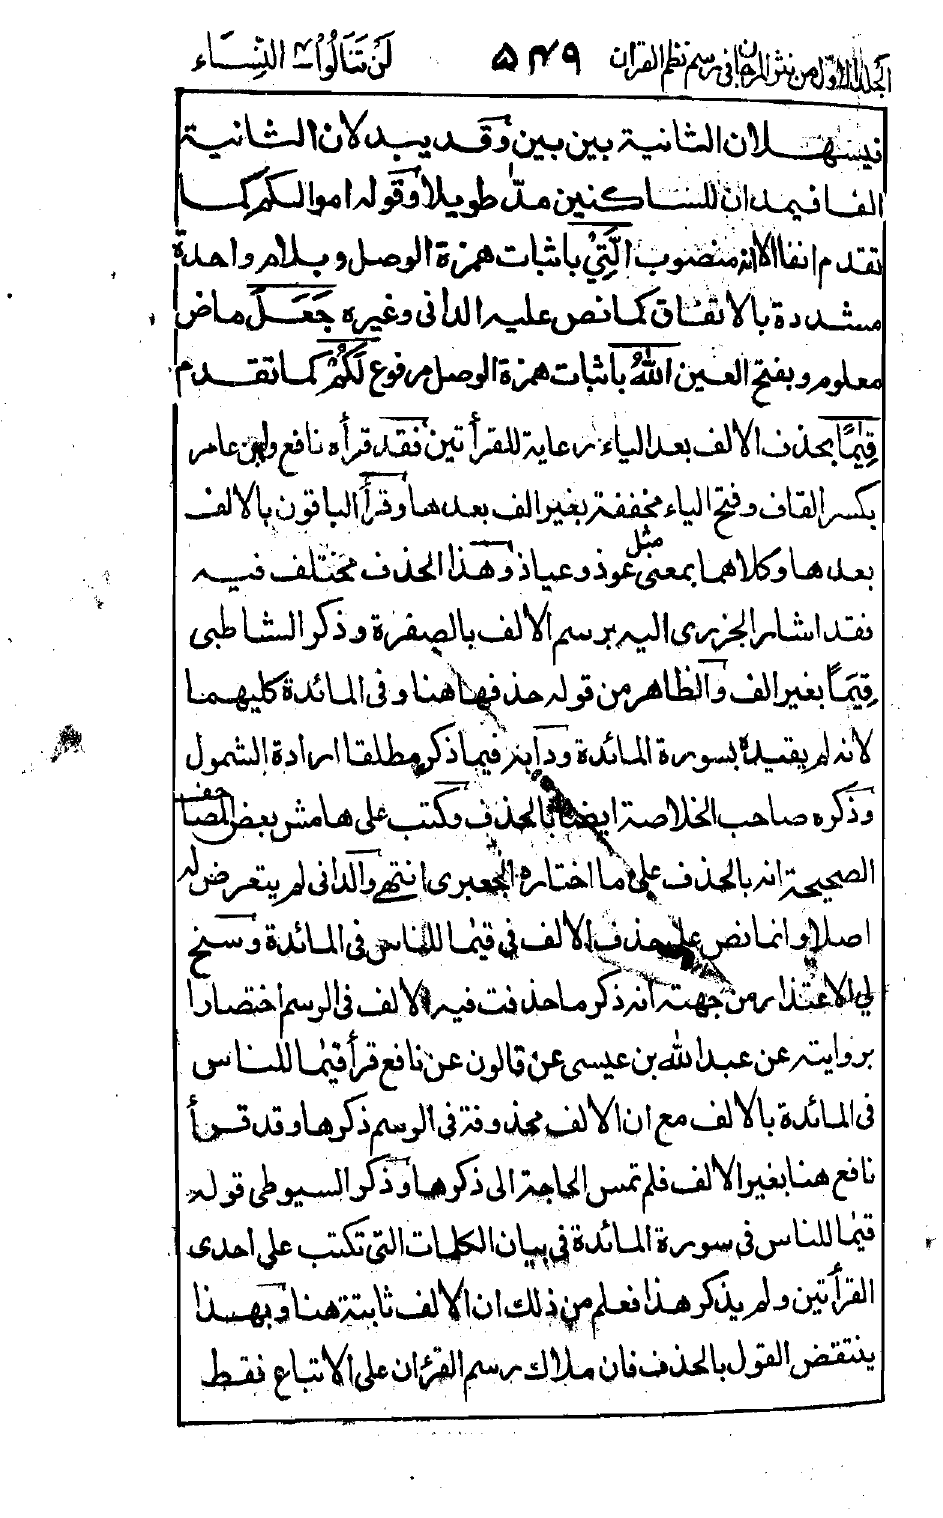 الجلد الاول من نثر المرجان فى رسم نظم القران ۵۴۹ لَنْ تَنَالُوا۟ النِّسَاء
فيسهلان الثانية بين بين وقد يبدلان الثانية
الفا فيمدان للساكنين مدّا طويلا وقوله اموالكم كما
تقدم انفا الا انه منصوب الَّتِيْ باثبات همزة الوصل وبلام واحدة
مشددة بالاتفاق كما نص عليه الدانى وغيره جَعَلَ ماض
معلوم وبفتح العين اللهُ باثبات همزة الوصل مرفوع لَكُمْ كما تقدم
قِيٰمًا بحذف الالف بعد الياء رعاية للقرأتين فقد قرأه نافع وابن عامر
بكسر القاف وفتح الياء مخففة بغير الف بعدها وقرأ الباقون بالالف
بعدها وكلاهما بمعنى مثل عوذ وعياذ وهذا الحذف مختلف فيه
فقد اشار الجزرى اليه برسم الالف بالصفرة وذكر الشاطبى
قِيَمًا بغير الف والظاهر من قوله حذفها هنا وفى المائدة كليهما
لانه لم يقيده بسورة المائدة ودابه فيما ذكر مطلقا ارادة الشمول
وذكره صاحب الخلاصة ايضا بالحذف وكتب على هامش بعض المصاحف
الصحيحة انه بالحذف على ما اختاره الجعبرى انتهى والدانى لم يتعرض له
اصلا وانما نص على حذف الالف فى قيٰما للناس فى المائدة وسنح
لى الاعتذار من جهته انه ذكر ما حذفت فيه الالف فى الرسم اختصارا
بروايته عن عبد الله بن عيسى عن قالون عن نافع قرأ قيٰما للناس
فى المائدة بالالف مع ان الالف محذوفة فى الرسم ذكرها وقد قرأ
نافع هنا بغير الالف فلم تمس الحاجة الى ذكرها وذكر السيوطى قوله
قيٰما للناس فى سورة المائدة فى بيان الكلمات التى تكتب على احدى
القرأتين ولم يذكر هذا فعلم من ذلك ان الالف ثابتة هنا وبهذا
ينتقض القول بالحذف فان ملاك رسم القرءان على الاتباع فقط